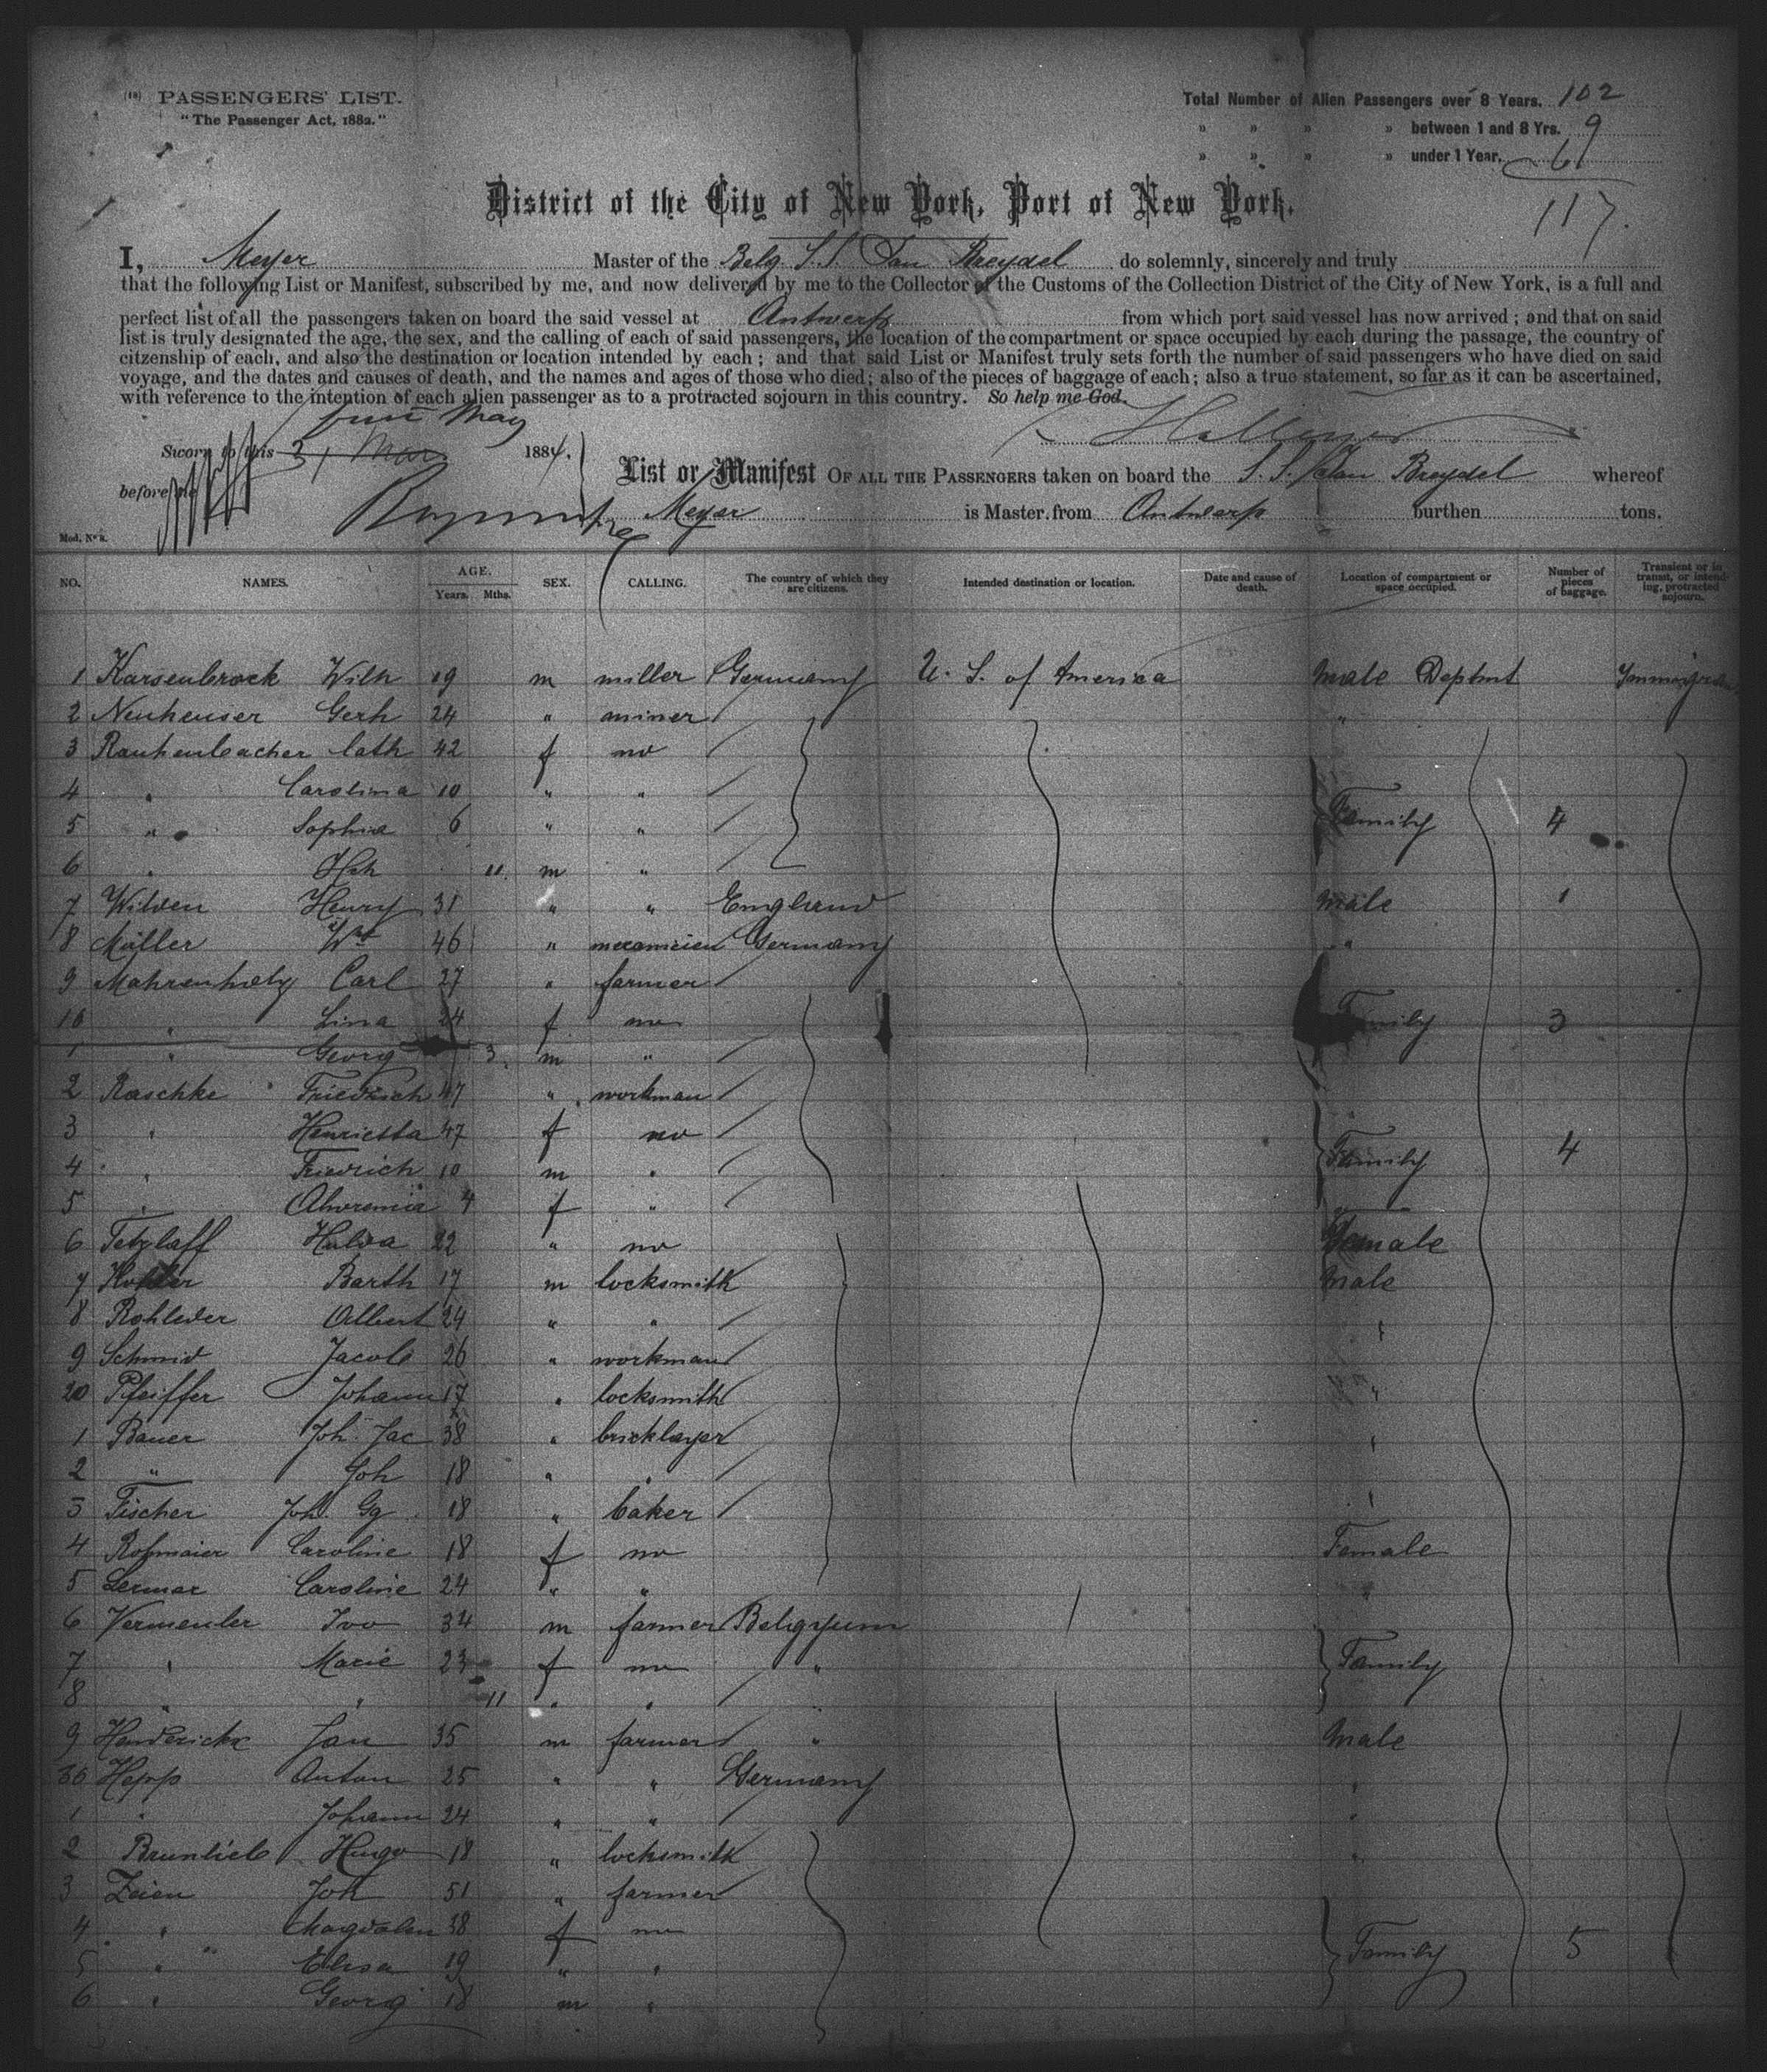 (18) PASSENGERS' LIST.
"The Passenger Act, 1882."
Total Number of Alien Passengers over 8 Years. 102
» » » » between 1 and 8 Yrs. 9
» » » » under 1 Year. 6
117.
District of the City of New York, Port of New York.
I, Meyer Master of the Belg. S.S. Jan Breydel do solemnly, sincerely and truly
that the following List or Manifest, subscribed by me, and now delivered by me to the Collector of the Customs of the Collection District of the City of New York, is a full and
perfect list of all the passengers taken on board the said vessel at Antwerp from which port said vessel has now arrived ; and that on said
list is truly designated the age, the sex, and the calling of each of said passengers, the location of the compartment or space occupied by each during the passage, the country of
citzenship of each, and also the destination or location intended by each ; and that said List or Manifest truly sets forth the number of said passengers who have died on said
voyage, and the dates and causes of death, and the names and ages of those who died; also of the pieces of baggage of each; also a true statement, so far as it can be ascertained,
with reference to the intention of each alien passenger as to a protracted sojourn in this country. So help me God.
May
Sworn to this 31 Mar 1884.
before me
List or Manifest OF ALL THE PASSENGERS taken on board the S. S. Jan Breydel whereof
Meyer is Master, from Antwerp burthen tons.
Mod. Nº 8.
NO. NAMES. AGE. Years. Mths. SEX. CALLING. The country of which they are citizens. Intended destination or location. Date and cause of death. Location of compartment or space occupied. Number of pieces of baggage. Transient or in transit, or intending, protracted sojourn.
1 Karsenbrock Wilh 19 m miller Germany U. S. of America Male Deptmt
2 Neuheuser Gerh 24 " miner "
3 Rauhenbacher Cath 42 f no
4 " Carolina 10 " "
5 " Sophia 6 " " Family 4
6 " Hch 11 m "
7 Wilden Henry 31 " " England Male 1
8 Müller Wm 46 " mecanicien Germany "
9 Mahrenholz Carl 27 " farmer
10 " Lina 24 f no Family 3
1 " Georg 3 m "
2 Raschke Friedrich 47 " workman
3 " Henrietta 47 f no Family 4
4 " Friedrich 10 m "
5 " 4 f "
6 Tetzlaff Hulda 22 " no Female
7 Barth 17 m locksmith Male
8 Rohleder Albert 24 " "
9 Schmid Jacob 26 " workman
20 Pfeiffer Johann 17 " locksmith "
1 Bauer Joh. Jac 38 " bricklayer "
2 " Joh 18 " "
3 Fischer Joh. Gg 18 " baker "
4 Rofmaier Caroline 18 f no Female
5 Lermer Caroline 24 " " "
6 Vermeuler Ivo 34 m farmer Belgyum
7 " Marie 23 f no " Family
8 " " 11 " " "
9 Henderickx Jan 35 m farmer " Male
30 Hepp Anton 25 " " Germany "
1 " Johann 24 " " "
2 Brunlieb Hugo 18 " locksmith "
3 Zeien Joh 51 " farmer
4 " Magdalen 38 f no
5 " Elisa 19 " " Family 5
6 " Georg 18 m "